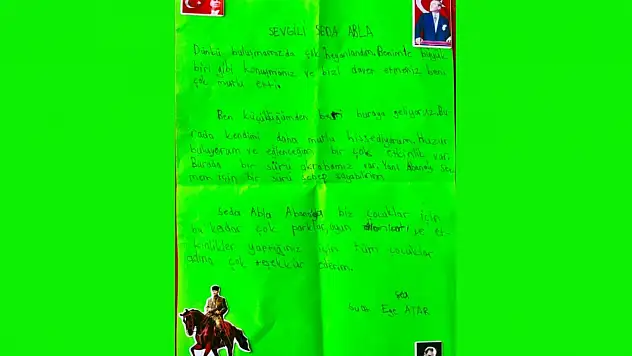 SEVGİLİ SEDA ABLA
Dünkü buluşmamızda çok heyecanlandım. Benimle büyük
biri gibi konuşmanız ve bizi davet etmeniz beni
çok mutlu etti.
Ben küçüklüğümden beri buraya geliyoruz. Bu
rada kendimi daha mutlu hissediyorum. Huzur
buluyorum ve eğleneceğim bir çok etkinlik var.
Burada bir sürü akrabamız var. Yani Abanayı sev
mem için bir sürü sebep sayabilirim.
Seda Abla Abanaya biz çocuklar için
bu kadar çok parklar, oyun ve et
kinlikler yaptığınız için tüm çocuklar
adına çok teşekkür ederim.
Ege ATAR